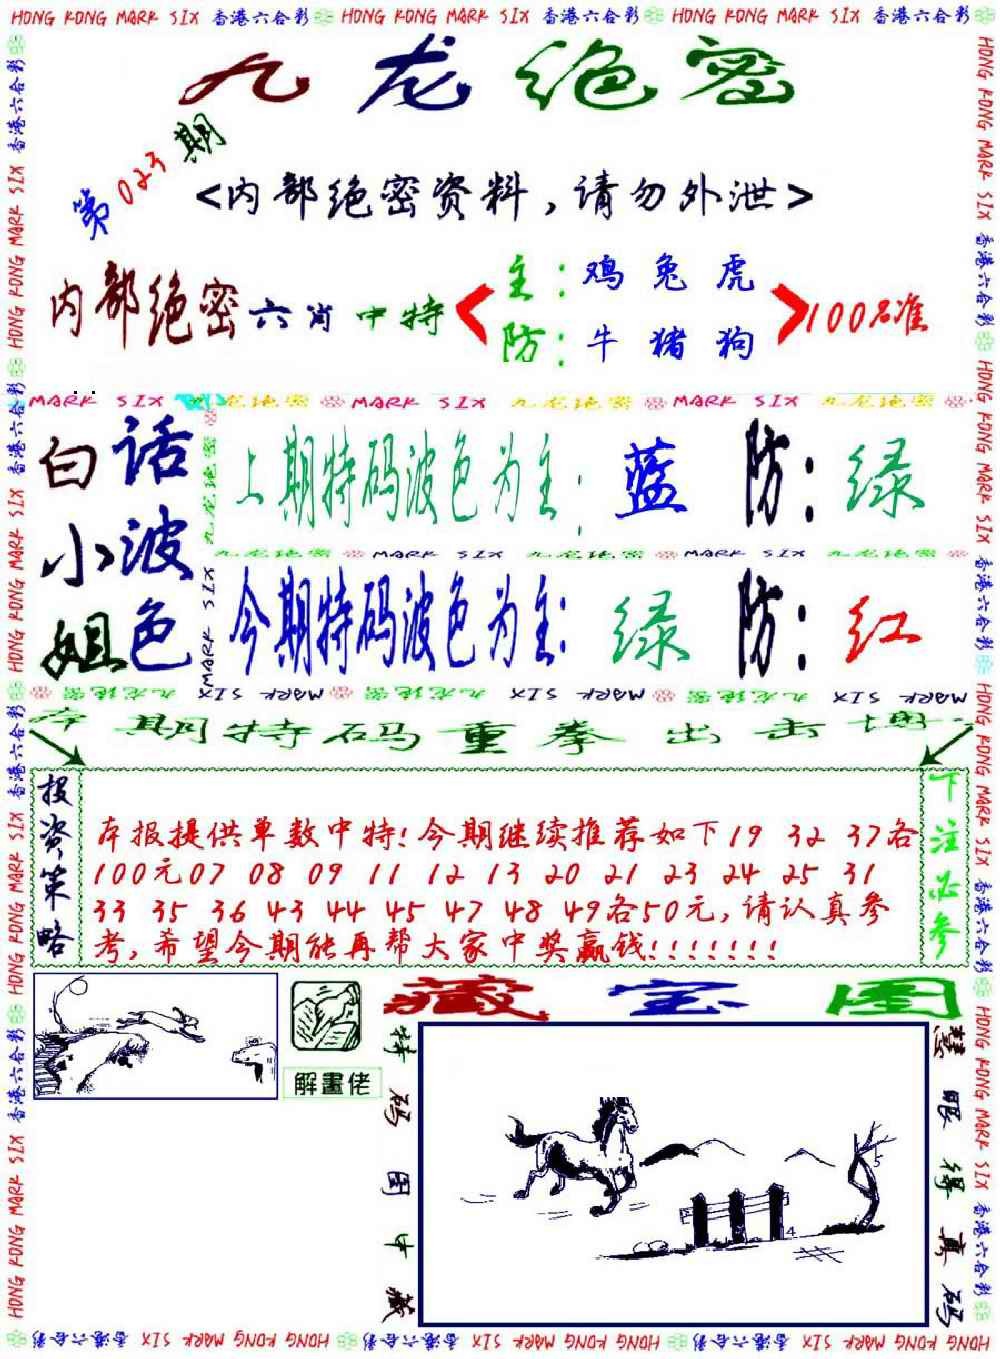 HONG KONG MARK SIX 香港六合彩 HONG KONG MARK SIX 香港六合彩 HONG KONG MARK SIX 香港六合彩
九龙绝密
第023期
<内部绝密资料，请勿外泄>
内部绝密六肖中特
主：鸡 兔 虎
防：牛 猪 狗
100%准
MARK SIX 九龙绝密 MARK SIX 九龙绝密 MARK SIX 九龙绝密
白小姐
话波色
上期特码波色为主：蓝 防：绿
九龙绝密 MARK SIX 九龙绝密 MARK SIX 九龙绝密
今期特码波色为主：绿 防：红
MARK SIX 九龙绝密 MARK SIX 九龙绝密 MARK SIX 九龙绝密
本期特码重拳出击
投资策略
本报提供单数中特!今期继续推荐如下19 32 37各
100元07 08 09 11 12 13 20 21 23 24 25 31
33 35 36 43 44 45 47 48 49各50元,请认真参
考,希望今期能再帮大家中奖赢钱!!!!!!!
下注必参
解畫佬
藏宝图
特码图中藏
4
5
慧眼得真码
HONG KONG MARK SIX 香港六合彩 HONG KONG MARK SIX 香港六合彩 HONG KONG MARK SIX 香港六合彩